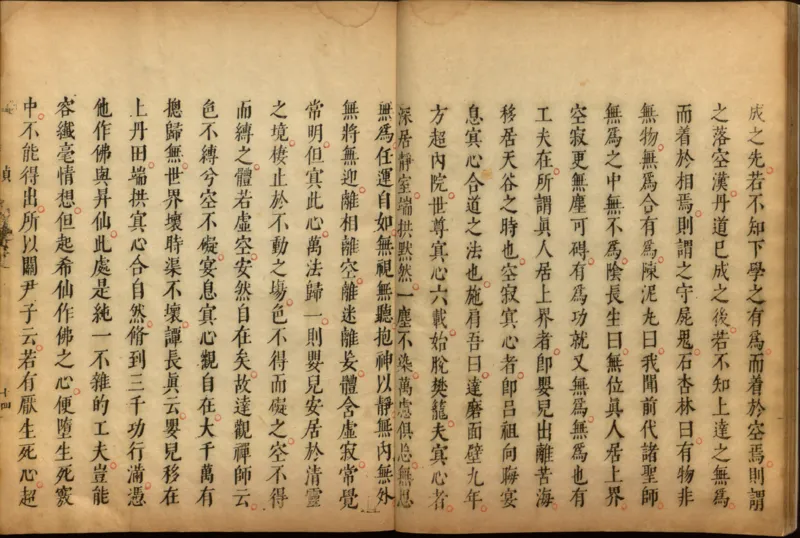 成之先若不知下學之有爲而着於空焉則謂
之落空漢丹道已成之後若不知上達之無爲
而着於相焉則謂之守屍鬼石杏林曰有物非
無物無爲合有爲陳泥丸曰我聞前代諸聖師
無爲之中無不爲陰長生曰無位眞人居上界
空寂更無塵可碍有爲功就又無爲無爲也有
工夫在所謂眞人居上界者卽嬰兒出離苦海
移居天谷之時也空寂寘心者卽呂祖向晦宴
息寘心合道之法也施肩吾曰達磨面壁九年
方超內院世尊寘心六載始脫樊籠夫寘心者
深居靜室端拱默然一塵不染萬慮俱忘無思
無爲任運自如無視無聽抱神以靜無內無外
無將無迎離相離空離迷離妄體含虛寂常覺
常明但寘此心萬法歸一則嬰兒安居於清靈
之境棲止於不動之場色不得而礙之空不得
而縛之體若虛空安然自在矣故達觀禪師云
色不縛兮空不礙宴息寘心觀自在大千萬有
摠歸無世界壞時渠不壞譚長眞云嬰兒移在
上丹田端拱寘心合自然脩到三千功行滿憑
他作佛與昇仙此處是純一不雜的工夫豈能
容纖毫情想但起希仙作佛之心便墮生死窽
中不能得出所以關尹子云若有厭生死心超
貞
十四